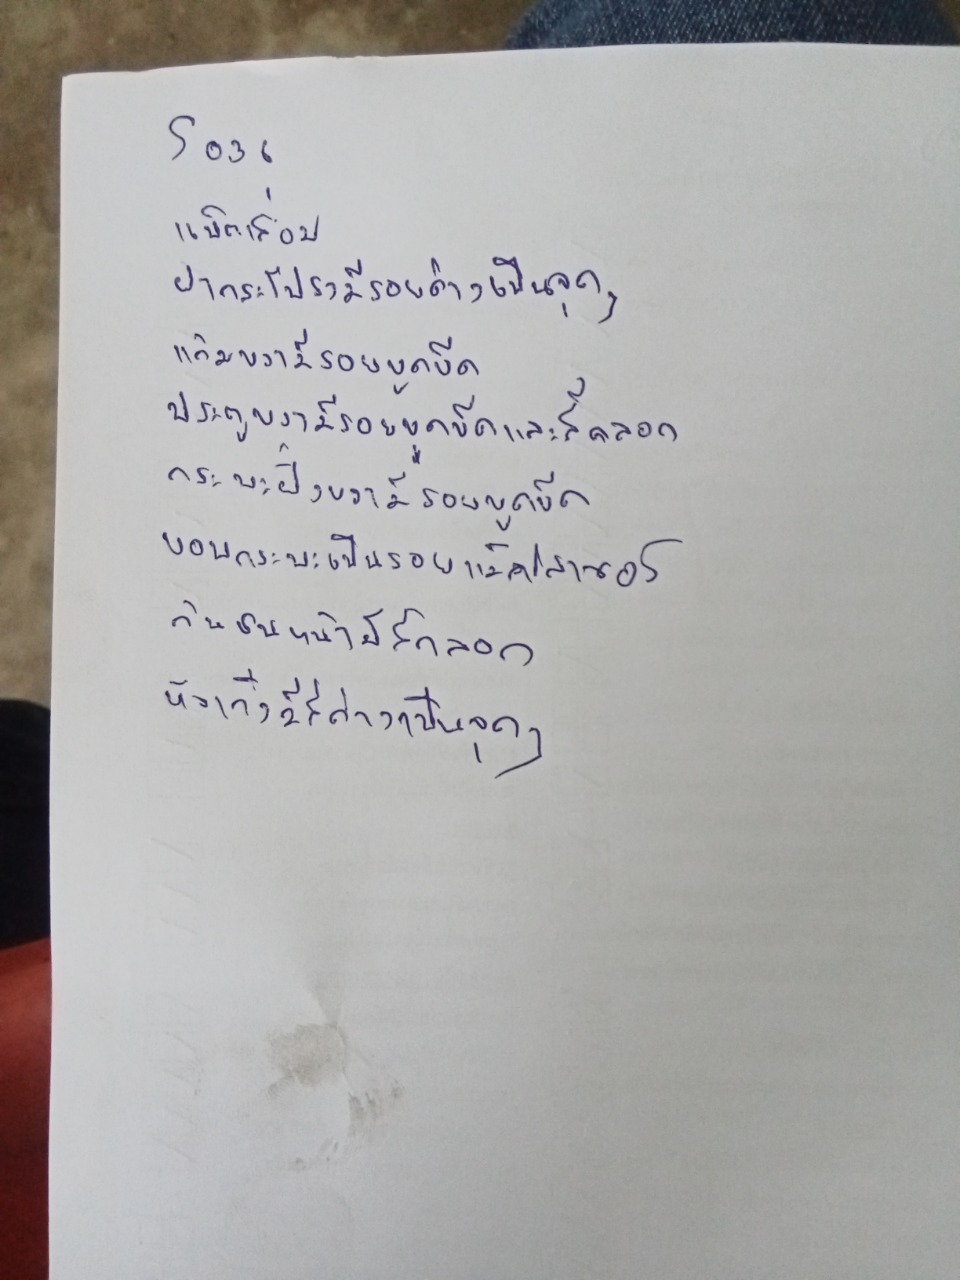 ร 036
แบตเสื่อม
ฝากระโปรงมีรอยด่างเป็นจุดๆ
แก้มขวามีรอยขูดขีด
ประตูขวามีรอยขูดขีดและสีลอก
กระบะฝั่งขวามีรอยขูดขีด
ขอบกระบะเป็นรอยแม็คไลเนอร์
กันชนหน้ามีสีลอก
หัวเก๋งมีสีด่างเป็นจุดๆ